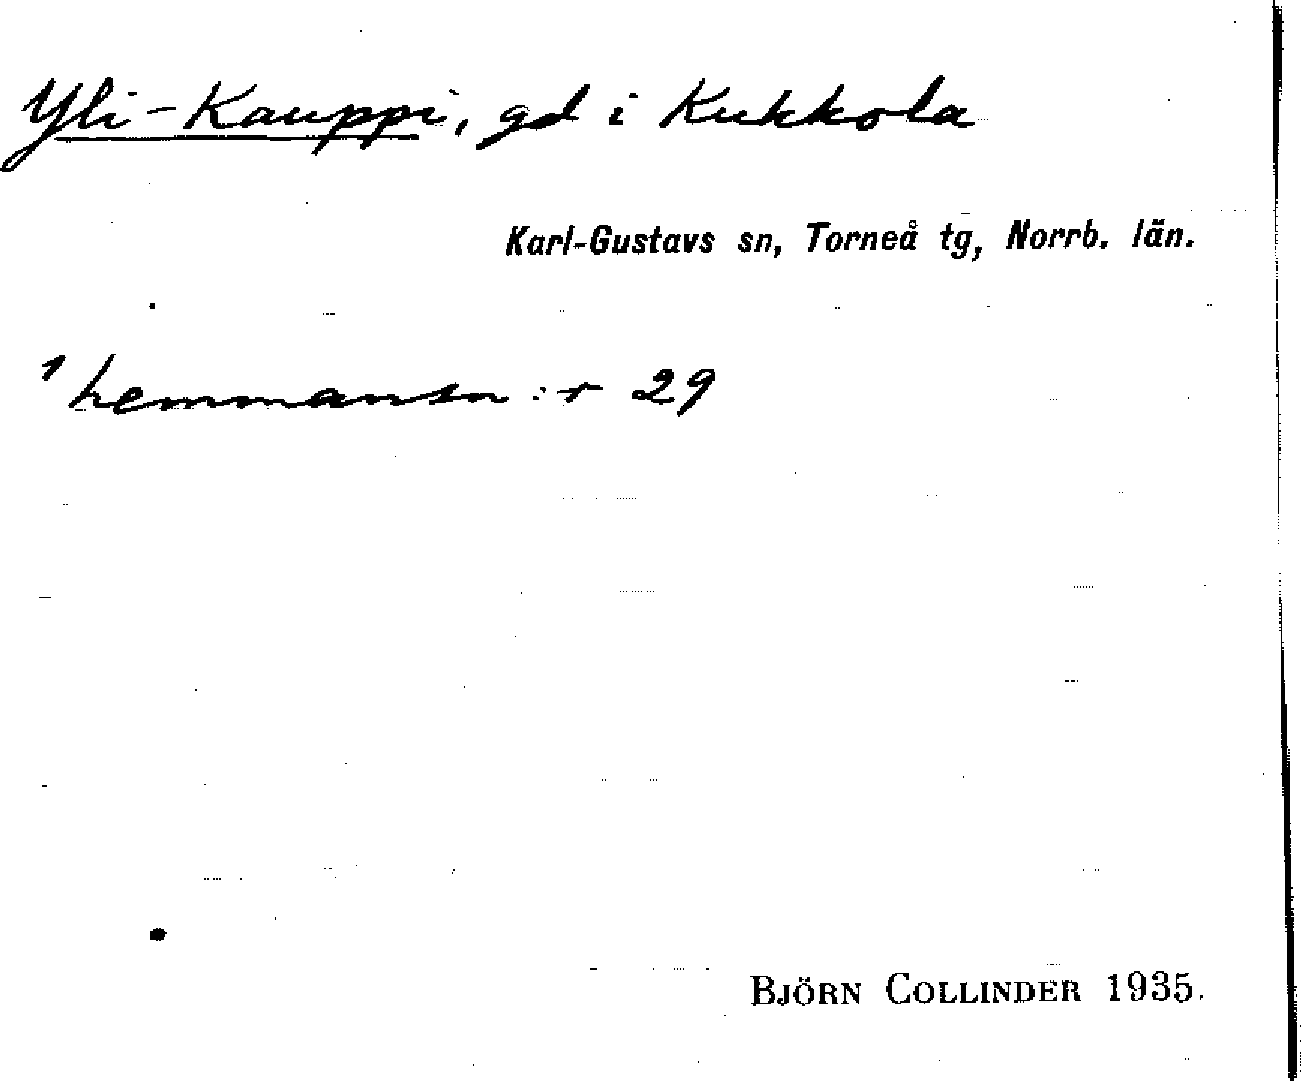 Yli-Kauppi, gd i Kukkola
Karl-Gustavs sn, Torneå tg, Norrb. län.
1 hemmansn:r 29
BJÖRN COLLINDER 1935.